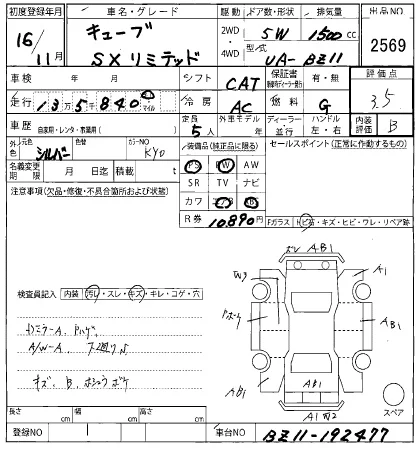 初度登録年月 車名・グレード 駆動 ドア数・形状 排気量 出品NO
16 / 11月 キューブ SXリミテッド 2WD 4WD 5W 1500cc 2569
型式 UA-BZ11
車検 年 月 シフト CAT 保証書 有・無 評価点
走行 13万5千840 マイル 冷房 AC 燃料 G 3.5
車歴 自家用・レンタ・事業用( ) 定員 5人 外車モデル年 ディーラー・並行 ハンドル 左・右 内装評価 B
外色 元色 シルバー 色替 カラーNO KY0 装備品(純正品に限る) セールスポイント(正常に作動するもの)
名義変更期限 月 日迄 積載 t PS PW AW
注意事項(欠品・修復・不具合箇所および状態) SR TV ナビ
カワ エアB AB
R券 10,890円
Fガラス トビ石・キズ・ヒビ・ワレ・リペア跡
スレ AB1
A1
W3
検査員記入 内装 汚レ・スレ・キズ・キレ・コゲ・穴
AB1
A/W-A 下廻りS
キズ B
AB1
AB1
スペア
長さ cm 幅 cm 高さ cm
登録NO 車台NO BZ11-192477